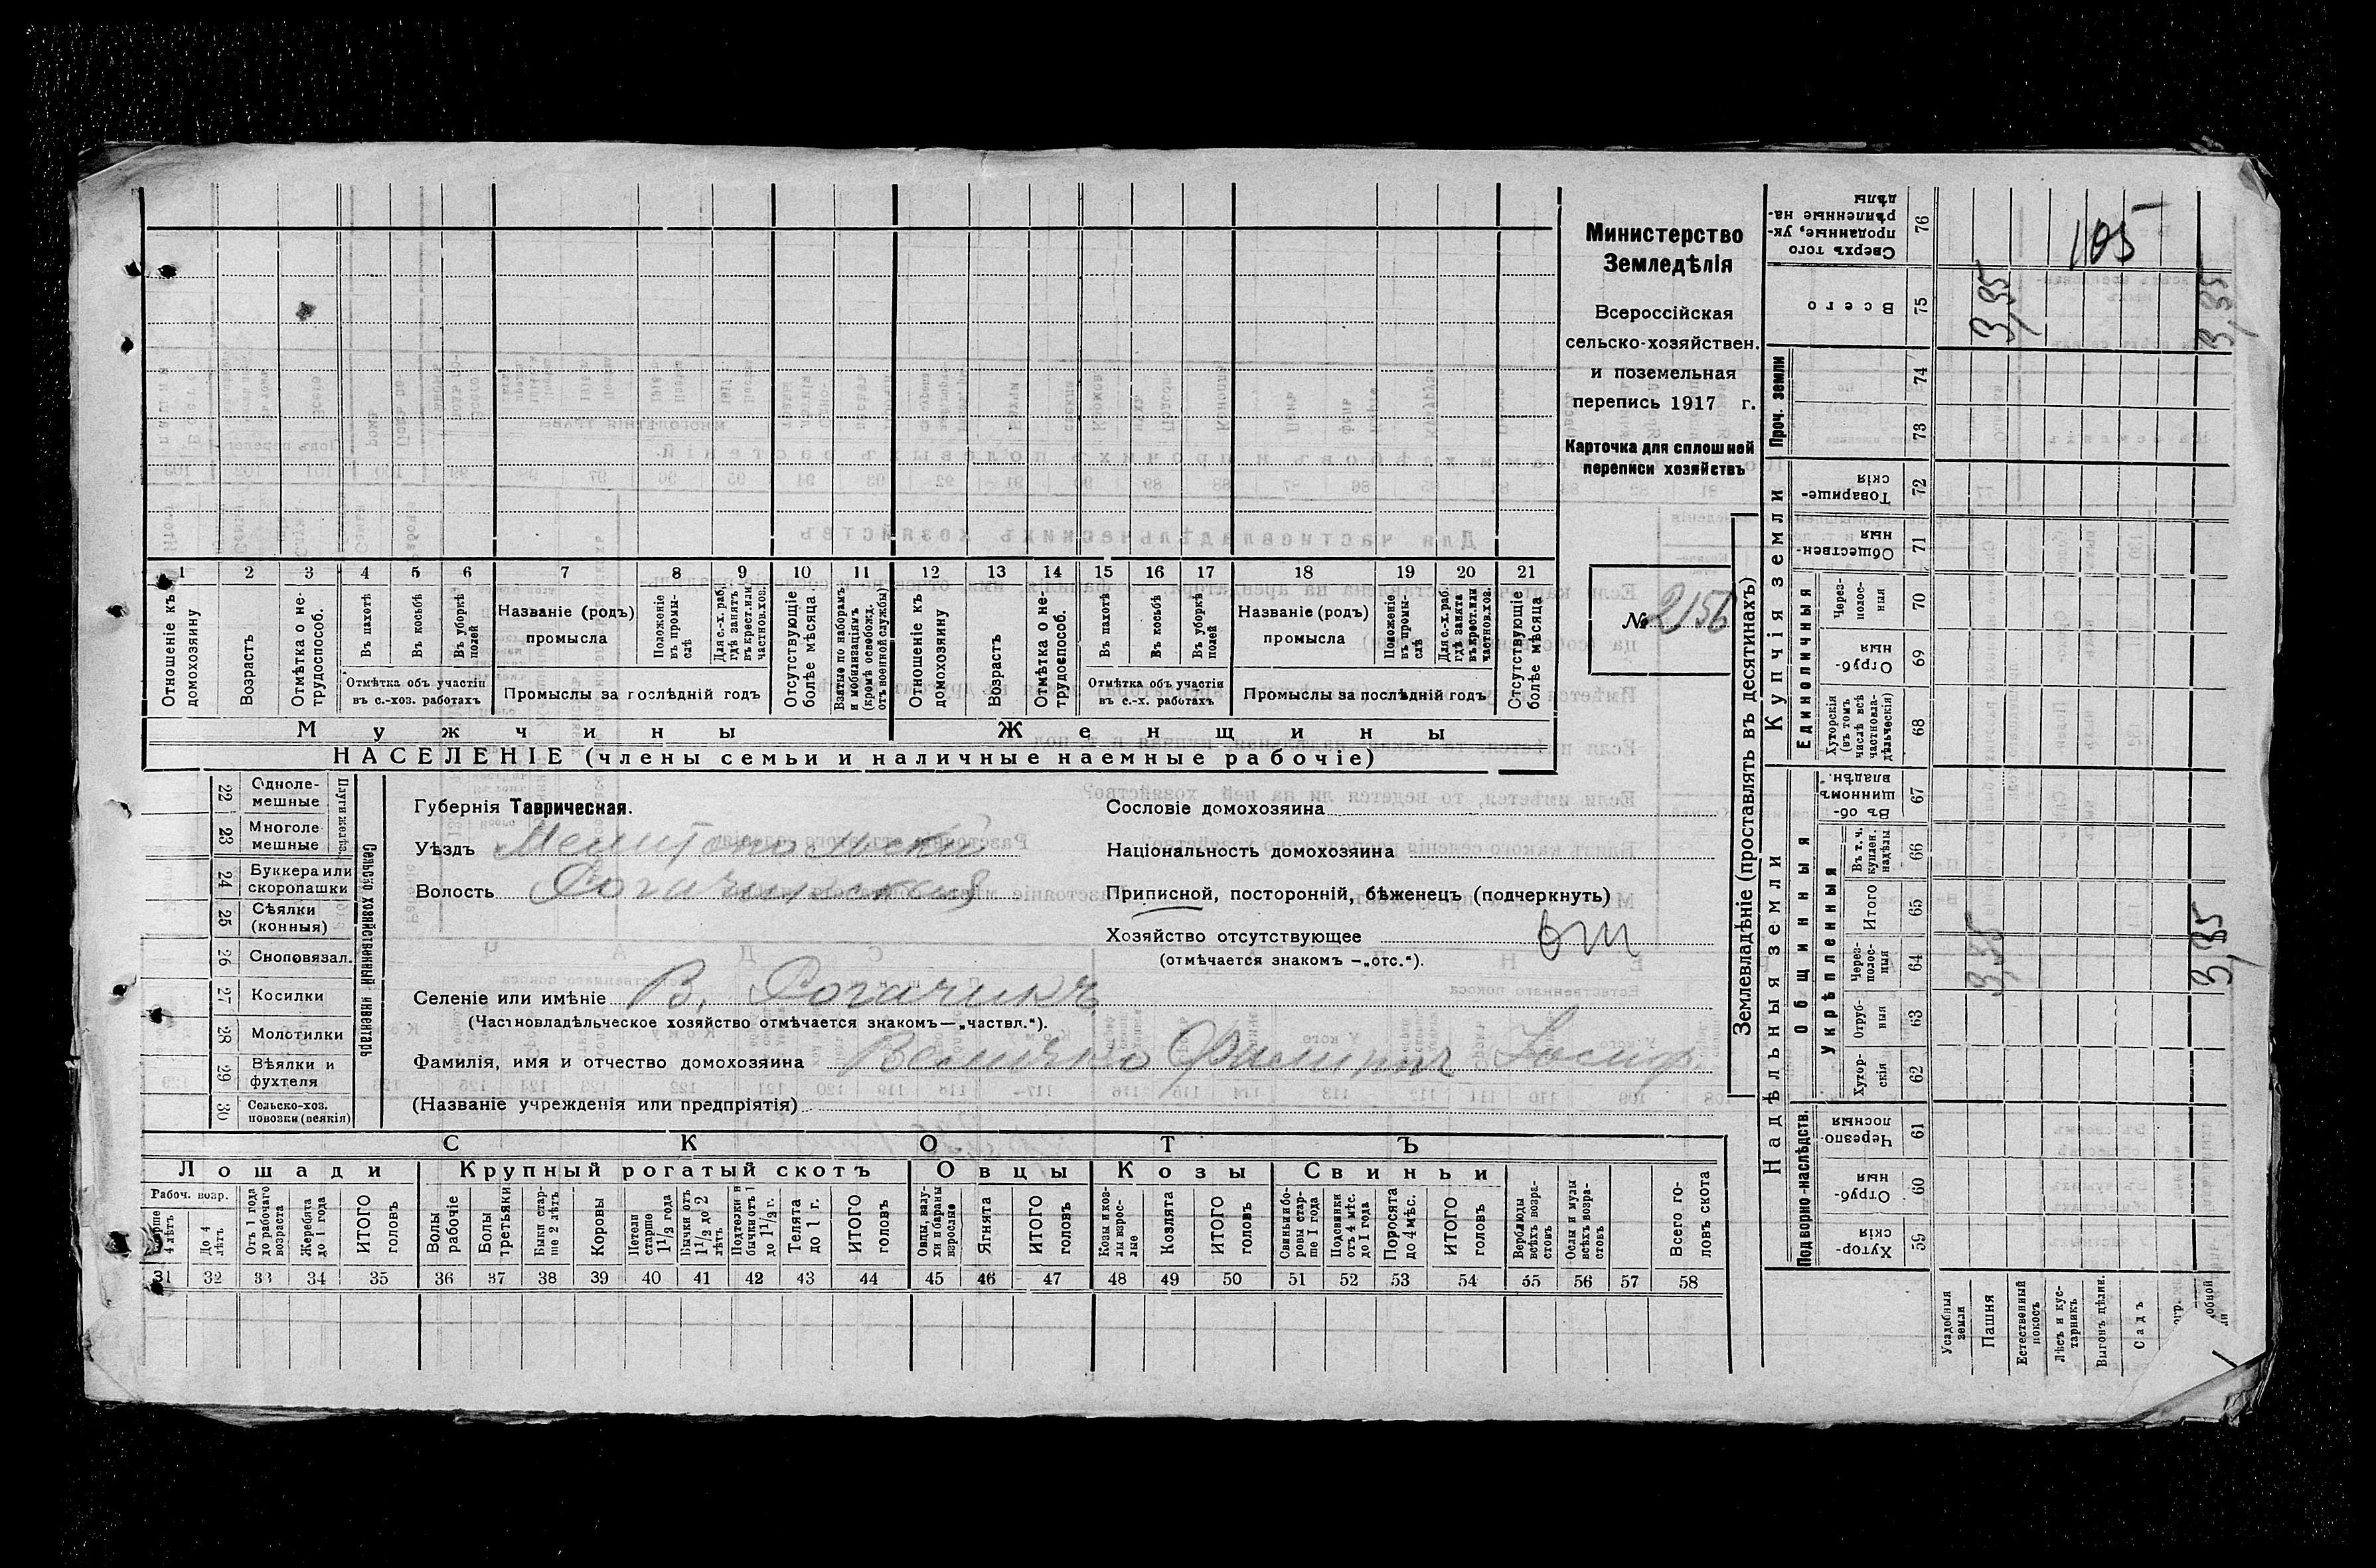 Министерство
Земледѣлія
Всероссійская
сельско-хозяйствен.
и поземельная
перепись 1917 г.
Карточка для сплошней
переписи хозяйствъ
№ 2156
1 2 3 4 5 6 7 8 9 10 11 12 13 14 15 16 17 18 19 20 21
Отношеніе къ домохозяину
Возрастъ
Отмѣтка о не-трудоспособ.
Въ пахотѣ
Въ косьбѣ
Въ уборкѣ полей
Отмѣтка объ участіи въ с.-хоз. работахъ
Названіе (родъ) промысла
Положеніе въ промы-слѣ
Для с.-х. раб, гдѣ занятъ въ крест. или частнов. хоз.
Промыслы за послѣдній годъ
Отсутствующіе болѣе мѣсяца
Взятые по наборамъ и мобилизаціямъ (кромѣ освобожд. отъ военной службы)
Отношеніе къ домохозяину
Возрастъ
Отмѣтка о не-трудоспособ.
Въ пахотѣ
Въ косьбѣ
Въ уборкѣ полей
Отмѣтка объ участіи въ с.-х. работахъ
Названіе (родъ) промысла
Положеніе въ промы-слѣ
Для с.-х. раб. гдѣ занята въ крест. или частнов. хоз.
Промыслы за послѣдній годъ
Отсутствующіе болѣе мѣсяца
Мужчины Женщины
НАСЕЛЕНІЕ (члены семьи и наличные наемные рабочіе)
22 Одноле-мешные
23 Многоле мешные
Плуги желѣз.
24 Буккера или скоропашки
25 Сѣялки (конныя)
26 Сноповязал.
27 Косилки
28 Молотилки
29 Вѣялки и фухтеля
30 Сельско-хоз. повозки (всякія)
Сельско хозяйственный инвентарь
Губернія Таврическая.
Уѣздъ Мелитопольскій
Волость Рогачикская
Сословіе домохозяина
Національность домохозяина
Приписной, посторонній, бѣженецъ (подчеркнуть)
Хозяйство отсутствующее от
(отмѣчается знакомъ —„отс.“).
Селеніе или имѣніе В. Рогачикъ
(Частновладѣльческое хозяйство отмѣчается знакомъ—„частвл.“).
Фамилія, имя и отчество домохозяина Величко Филиппъ Іосиф.
(Названіе учрежденія или предпріятія)
СКОТЪ
Лошади Крупный рогатый скотъ Овцы Козы Свиньи
Рабоч. возр.
Старше 4 лѣтъ
До 4 лѣтъ
Отъ 1 года до рабочаго возраста
Жеребята до 1 года
ИТОГО головъ
Волы рабочіе
Волы третьяки
Быки стар-ше 2 лѣтъ
Коровы
Нетели старше 1 1/2 года
Бычки отъ 1 1/2 до 2 лѣтъ
Подтелки и бычки отъ 1 до 1 1/2 г.
Телята до 1 г.
ИТОГО головъ
Овцы, валу-хи и бараны взрослые
Ягнята
ИТОГО головъ
Козы и коз-лы взрос-лые
Козлята
ИТОГО головъ
Свиньи и бо-ровы стар-ше 1 года
Подсвинки отъ 4 мѣс. до 1 года
Поросята до 4 мѣс.
ИТОГО головъ
Верблюды всѣхъ возра-стовъ
Ослы и мулы всѣхъ возра-стовъ
Всего го-ловъ скота
31 32 33 34 35 36 37 38 39 40 41 42 43 44 45 46 47 48 49 50 51 52 53 54 55 56 57 58
Землевладѣніе (проставлять въ десятинахъ)
Купчія земли
Надѣльныя земли
Проч. земли
Единоличныя
Общинныя
Укрѣпленныя
Подворно-наслѣдств.
Сверхъ того проданные, ук-рѣпленные на-дѣлы 76 105
Всего 75 3,95 3,95
74
73
Товарище-скія 72
Обществен-ныя 71
Через-полос-ныя 70
Отруб-ныя 69
Хуторскія (въ томъ числѣ всѣ частновла-дѣльческія) 68
Въ об-щинномъ владѣн. 67
Въ т. ч. куплен. надѣлы 66
Итого 65
Через-полос-ныя 64
Отруб-ныя 63
Хутор-скія 62
Черезпо-лосныя 61
Отруб-ныя 60
Хутор-скія 59
Усадебныя земли
Пашня
Естественный покосъ
Лѣсъ и кус-тарникъ
Выгонъ цѣлин.
Садъ